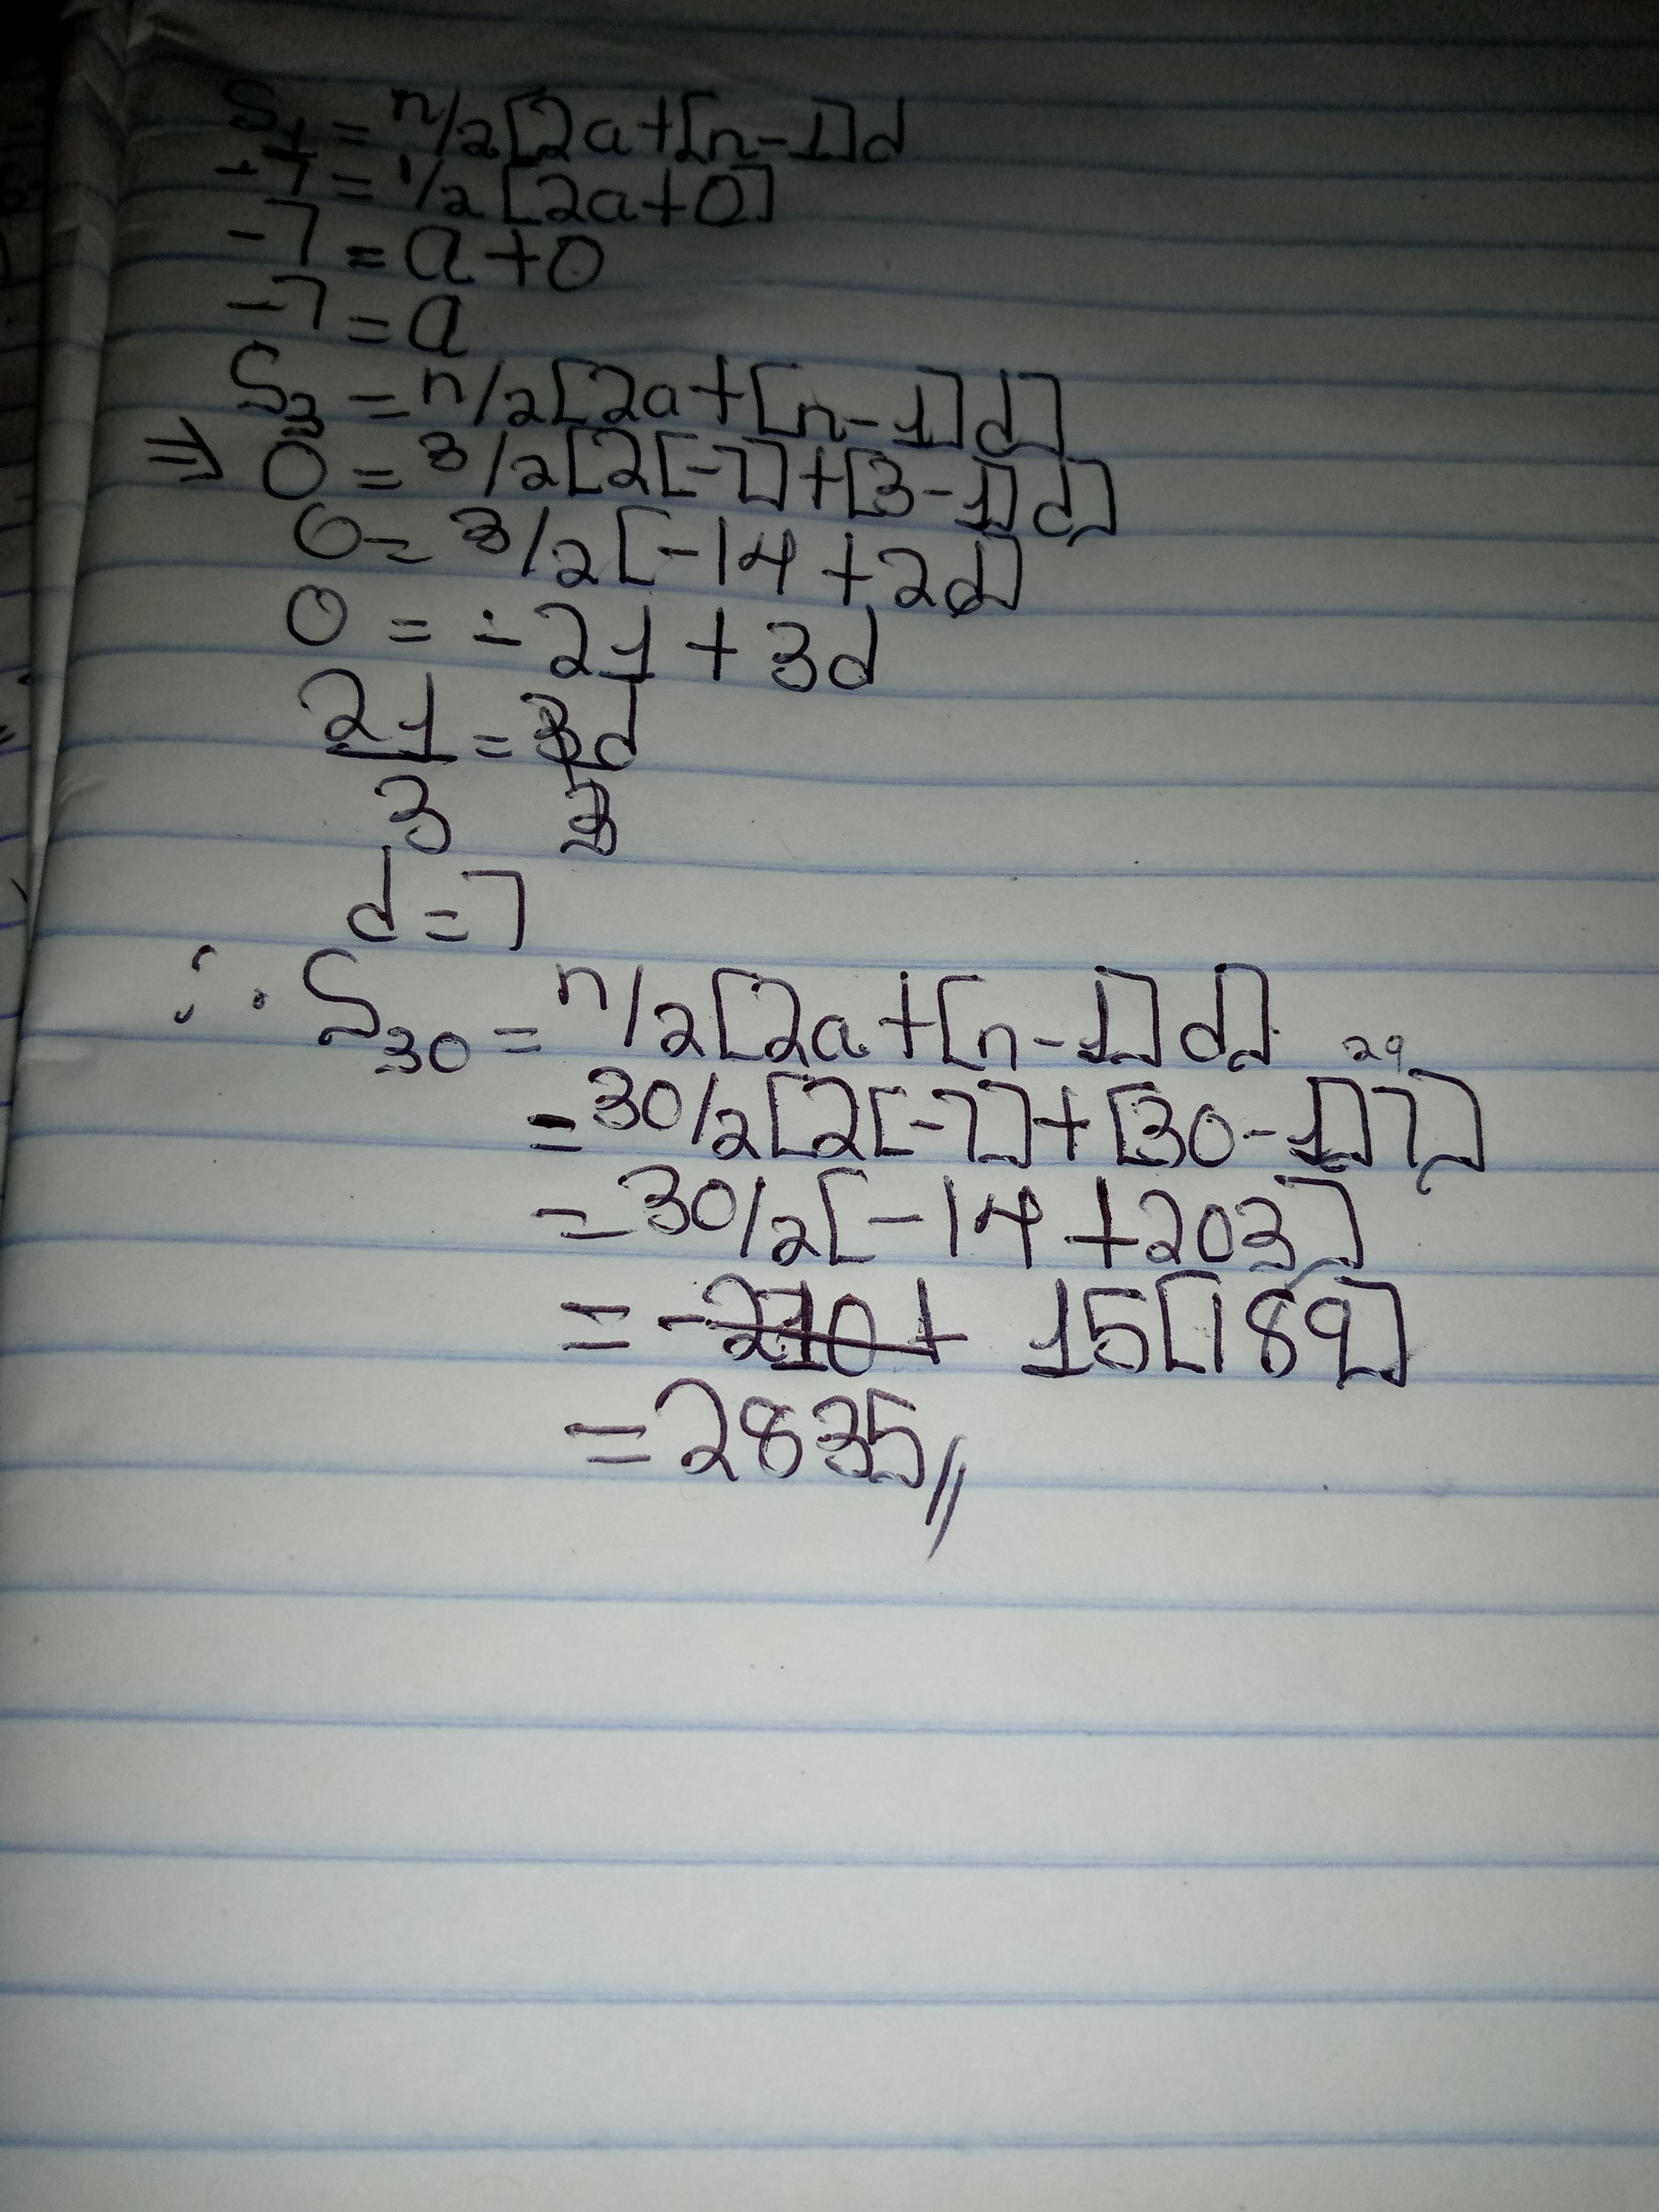 S₁ = n/2[2a+[n-1]d
-7 = 1/2[2a+0]
-7 = a+0
-7 = a
S₃ = n/2[2a+[n-1]d]
⇒ 0 = 3/2[2[-7]+[3-1]d]
0 = 3/2[-14+2d]
0 = -21+3d
21 = 3d
3 3
d = 7
∴ S₃₀ = n/2[2a+[n-1]d]
29
= 30/2[2[-7]+[30-1]7]
= 30/2[-14+203]
= -210+ 15[189]
= 2835//